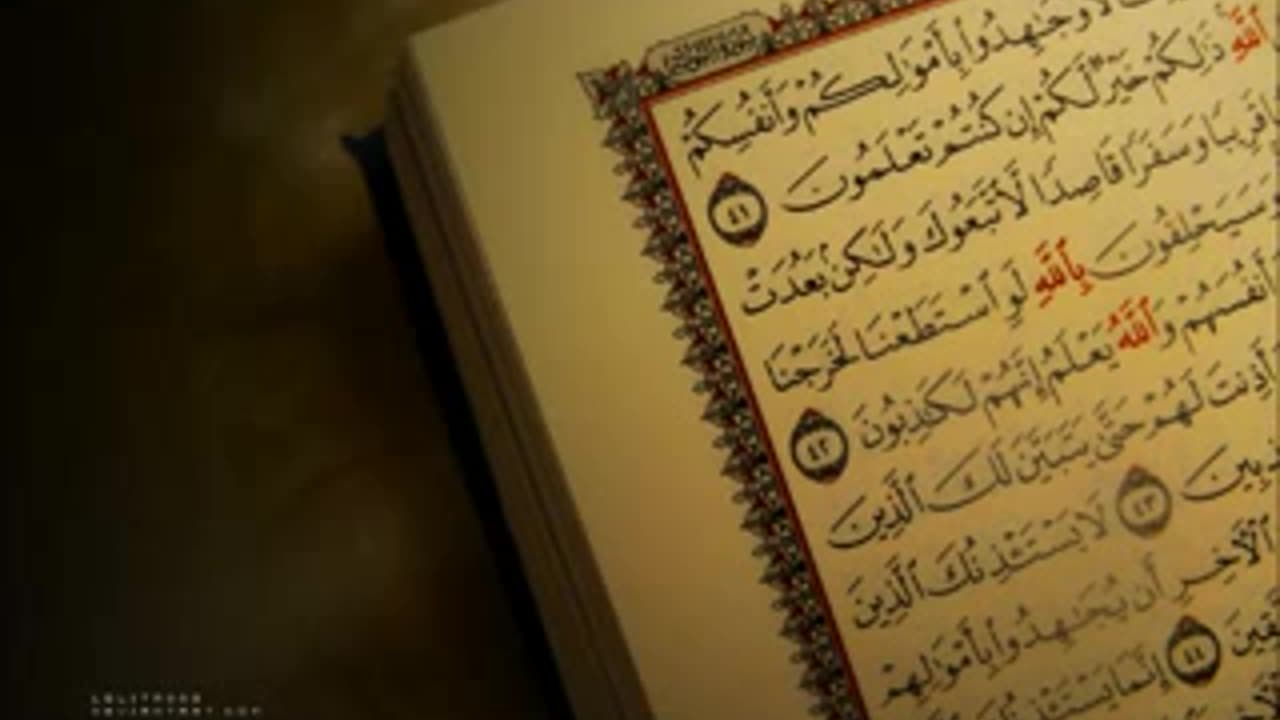 وَجَٰهِدُوا۟ بِأَمْوَٰلِكُمْ وَأَنفُسِكُمْ
ٱللَّهِ ذَٰلِكُمْ خَيْرٌ لَّكُمْ إِن كُنتُمْ تَعْلَمُونَ ٤١
قَرِيبًا وَسَفَرًا قَاصِدًا لَّٱتَّبَعُوكَ وَلَٰكِنۢ بَعُدَتْ
وَسَيَحْلِفُونَ بِٱللَّهِ لَوِ ٱسْتَطَعْنَا لَخَرَجْنَا
أَنفُسَهُمْ وَٱللَّهُ يَعْلَمُ إِنَّهُمْ لَكَٰذِبُونَ ٤٢
أَذِنتَ لَهُمْ حَتَّىٰ يَتَبَيَّنَ لَكَ ٱلَّذِينَ
ٱلْكَٰذِبِينَ ٤٣ لَا يَسْتَـْٔذِنُكَ ٱلَّذِينَ
ٱلْءَاخِرِ أَن يُجَٰهِدُوا۟ بِأَمْوَٰلِهِمْ
٤٤ إِنَّمَا يَسْتَـْٔذِنُكَ